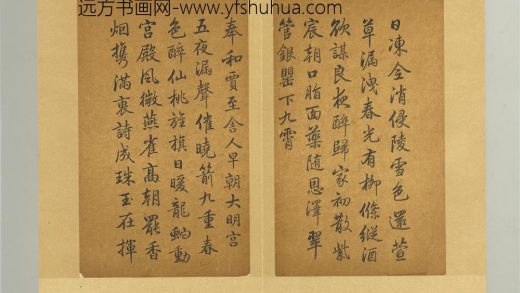 远方书画网-www.yfshuhua.com
日凍全消侵陵雪色還萱
草漏洩春光有柳條縱酒
欲謀良夜醉歸家初散紫
宸朝口脂面藥隨恩澤翠
管銀罌下九霄
奉和賈至舍人早朝大明宮
五夜漏聲催曉箭九重春
色醉仙桃旌旗日暖龍虵動
宮殿風微燕雀高朝罷香
烟攜滿褎詩成珠玉在揮